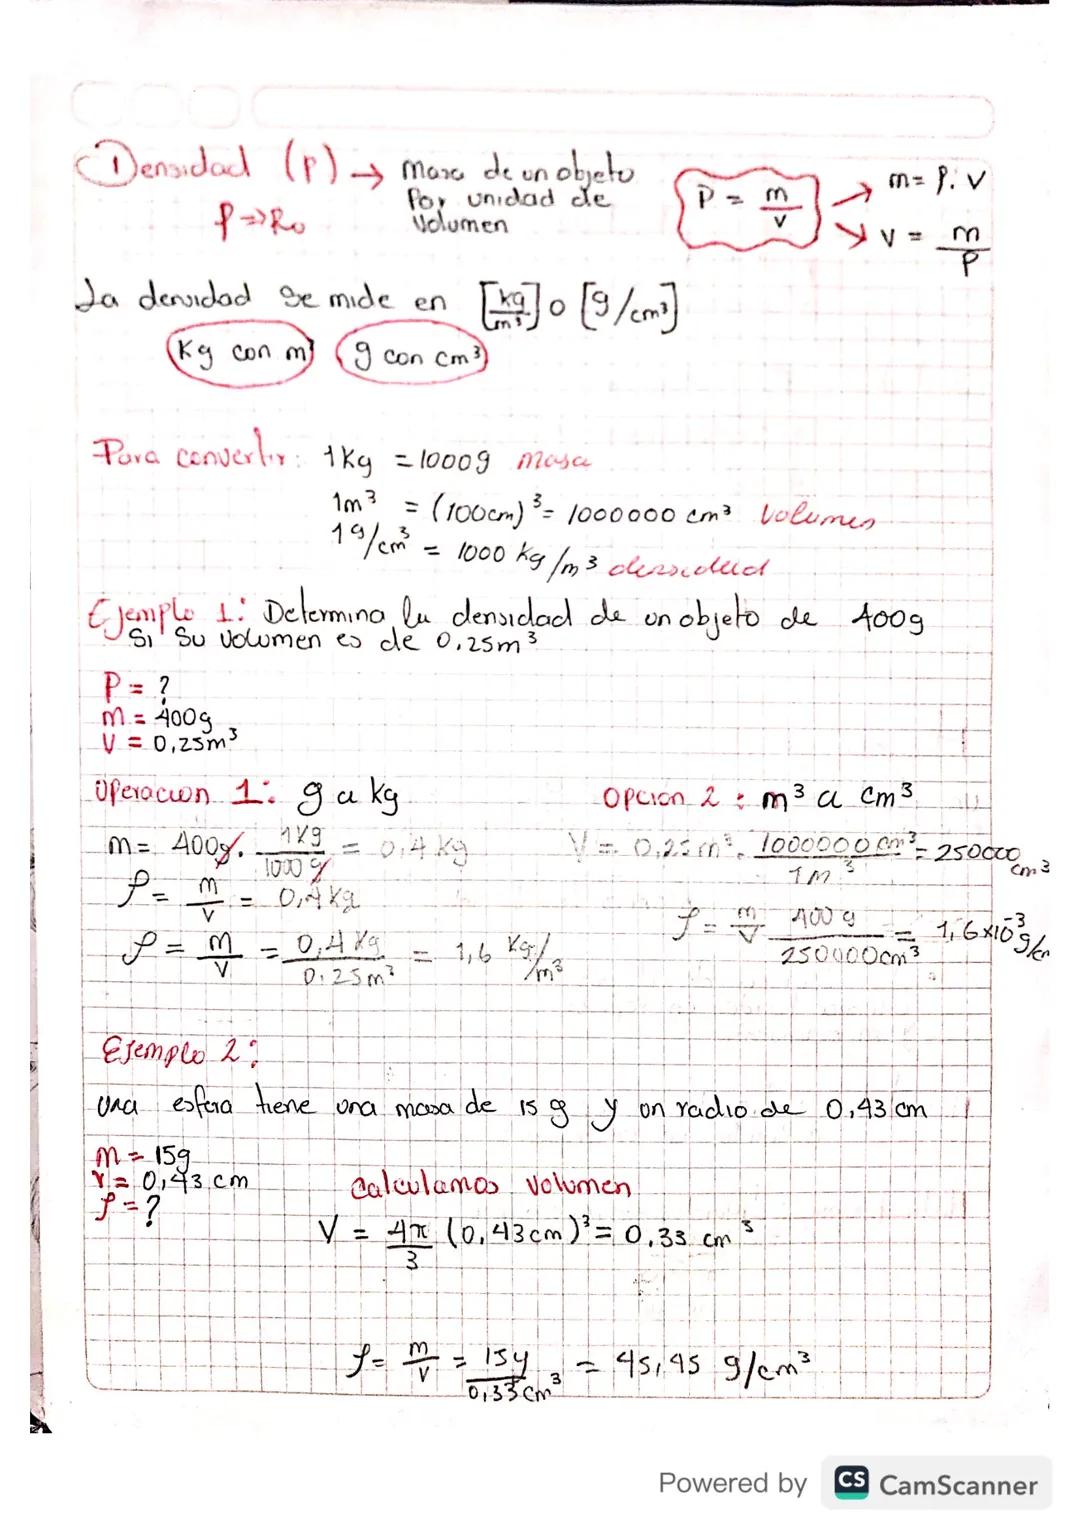 Densidad (ρ) → Masa de un objeto
por unidad de
Volumen
ρ ⇒ Ro
ρ = m/v → m = ρ. v
↘ v = m/ρ
La densidad se mide en [kg/m³] o [g/cm³]
Kg con m³ g con cm³
Para convertir: 1Kg = 1000g masa
1m³ = (100cm)³ = 1000000 cm³ Volumen
1g/cm³ = 1000 Kg/m³ densidad
Ejemplo 1: Determina la densidad de un objeto de 400g
Si su volumen es de 0.25m³
ρ = ?
m = 400g
V = 0,25m³
Operacion 1: g a kg
m = 400g. 1Kg/1000g = 0,4 kg
ρ = m/v = 0,4 kg
ρ = m/v = 0,4 Kg/0.25m³ = 1,6 Kg/m³
Opcion 2 : m³ a cm³
V = 0,25m³. 1000000 cm³/1m³ = 250000 cm³
ρ = m/v 400 g/250000cm³ = 1,6×10⁻³ g/cm
Ejemplo 2:
Una esfera tiene una masa de 15 g y un radio de 0,43 cm
m = 15g
r = 0,43 cm
ρ = ?
Calculamos volumen
V = 4π/3 (0,43cm)³ = 0,33 cm³
ρ = m/v = 15g/0,33 cm³ = 45,45 g/cm³
Powered by CS CamScanner